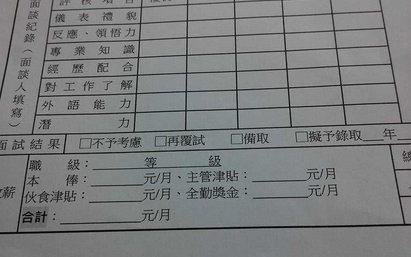 面談紀錄(面談人填寫)
儀表禮貌
反應、領悟力
專業知識
經歷配合
對工作了解
外語能力
潛力
面試結果 □不予考慮 □再覆試 □備取 □擬予錄取___年
職級:______等______級
本俸:______元/月、主管津貼:______元/月
伙食津貼:______元/月、全勤獎金:______元/月
合計:______元/月
薪